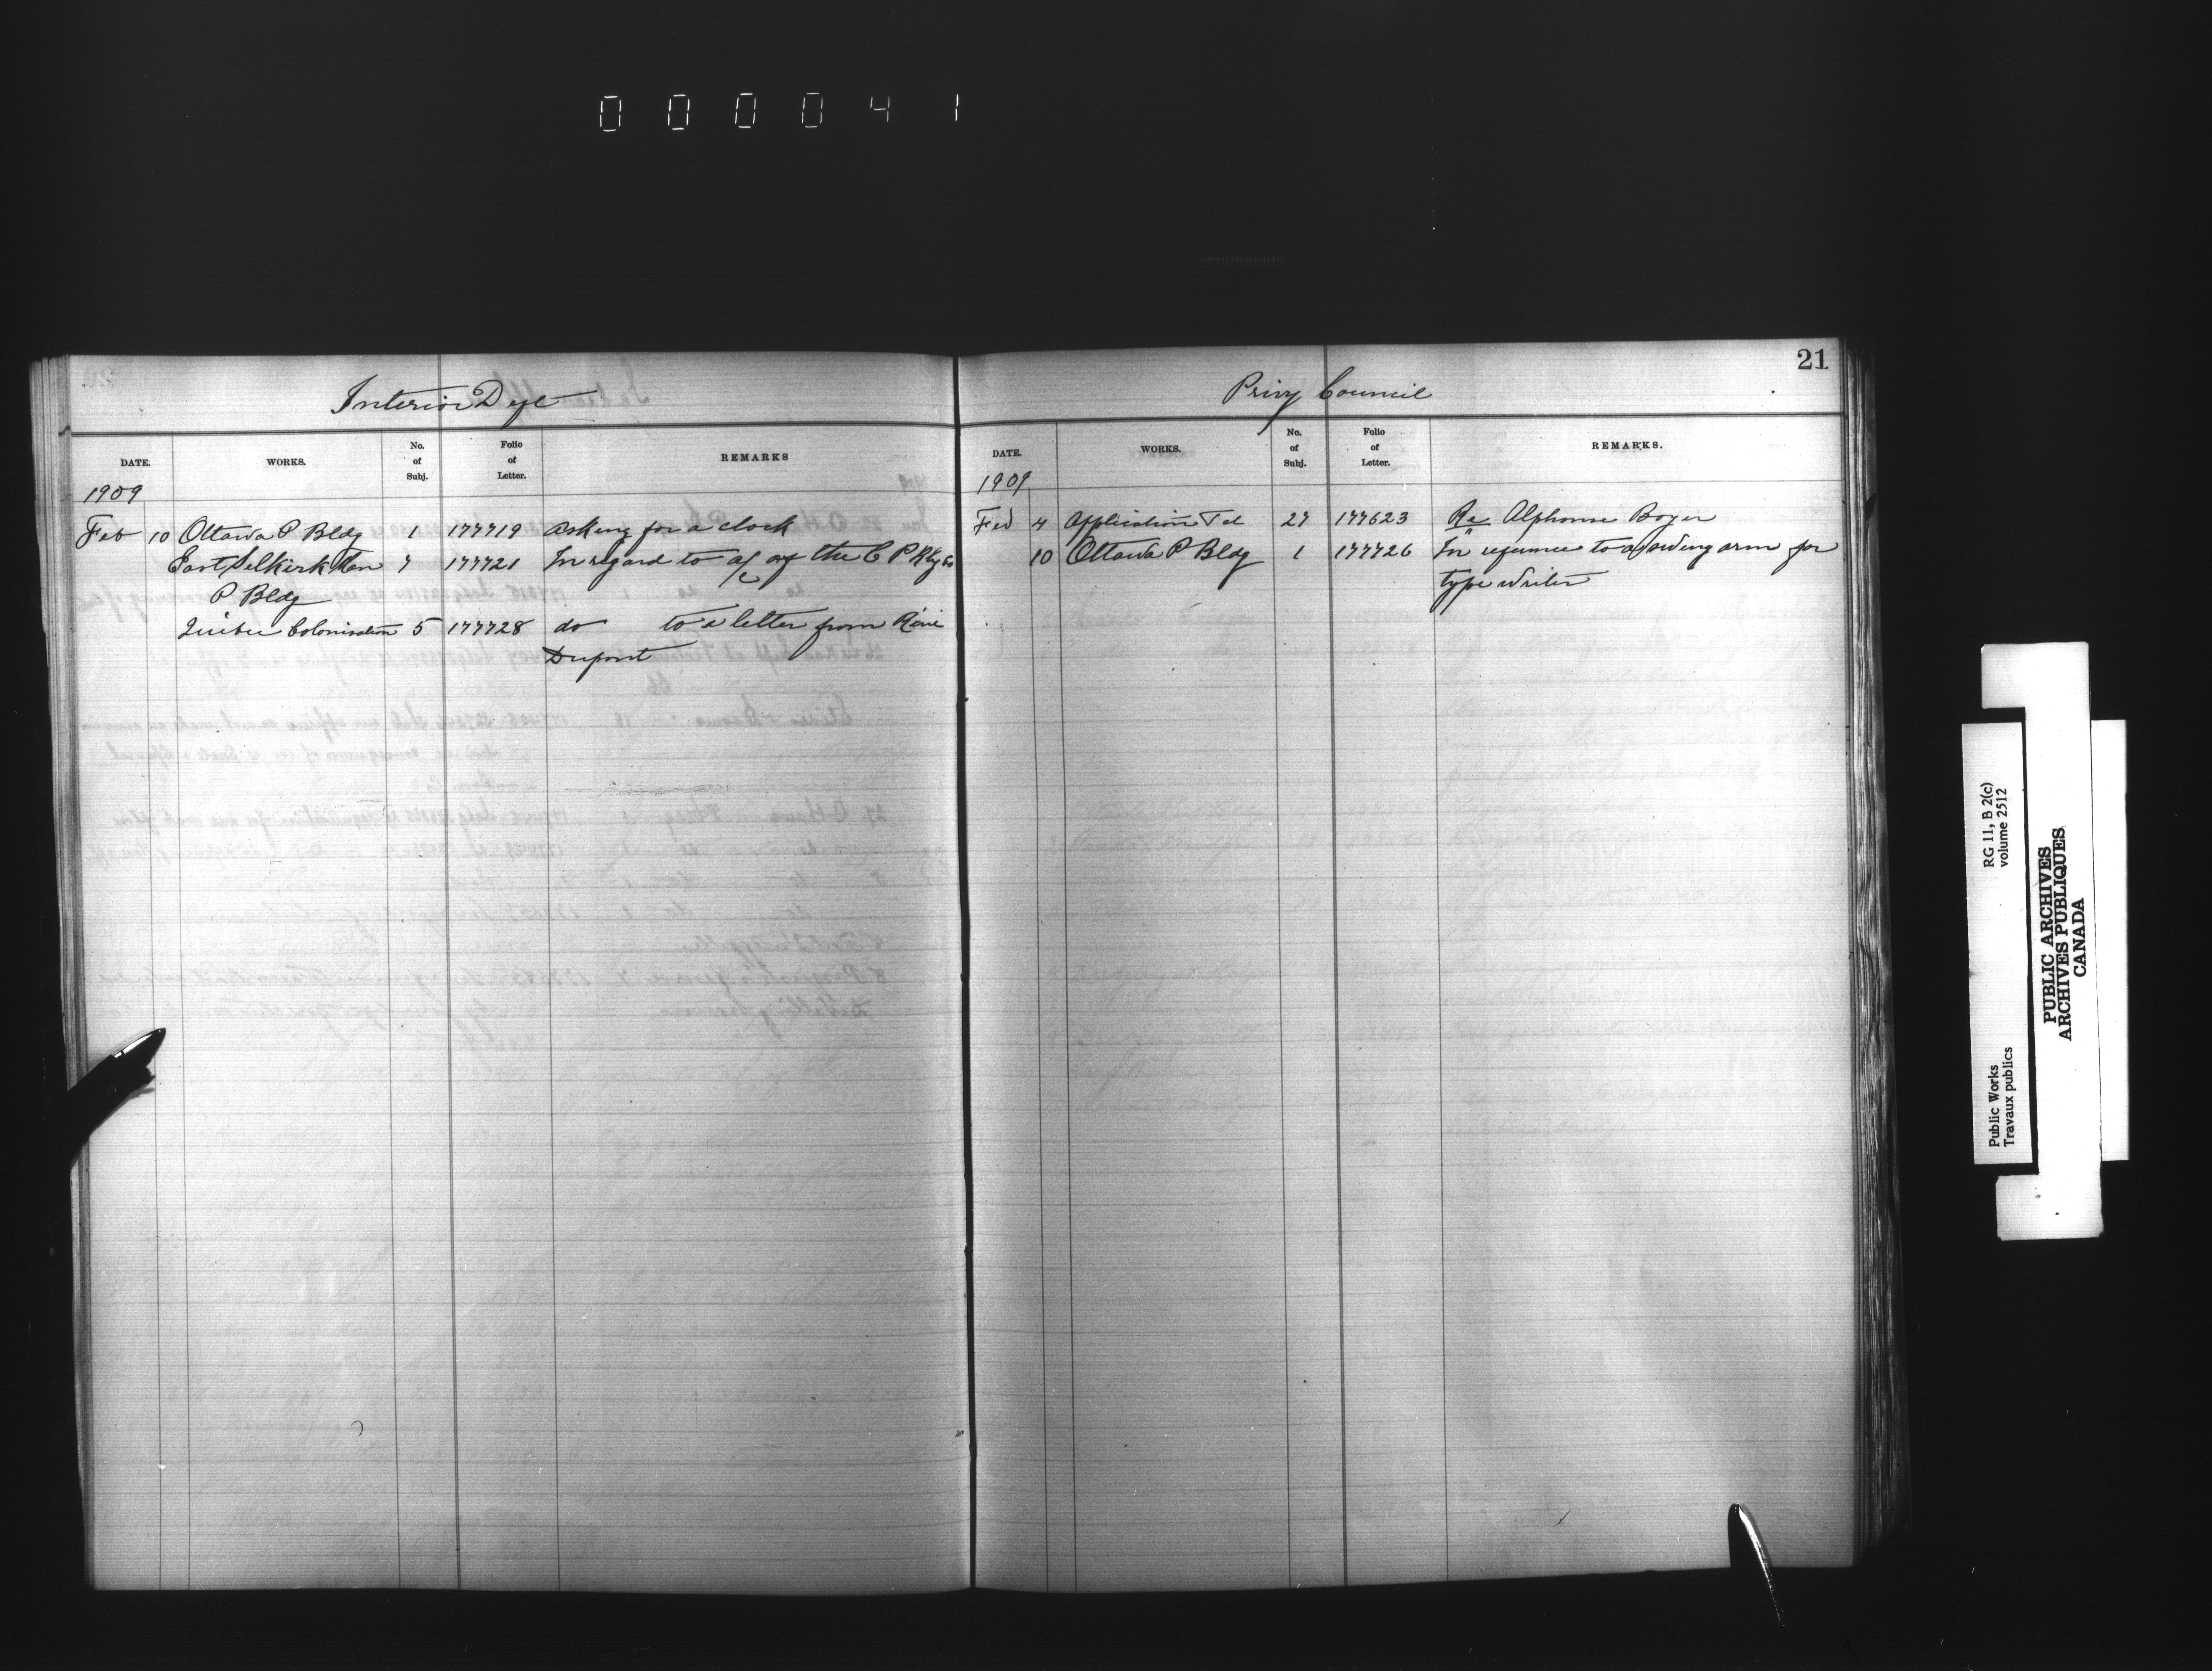 000041
Interior Dept
DATE. WORKS. No. of Subj. Folio of Letter. REMARKS
1909
Feb 10 Ottawa P Bldg 1 177719 asking for a clock
East Selkirk Man 7 177721 In regard to a/c of the C P Rly Co
P Bldg
Colonisation 5 177728 do to a letter from Réné
Dupont
21
Privy Council
DATE. WORKS. No. of Subj. Folio of Letter. REMARKS.
1909
Feb 4 Application Tel 27 177623 Re Alphonse Boyer
10 Ottawa P Bldg 1 177726 In reference to a swing arm for
type writer
Public Works
Travaux publics
RG 11, B 2(c)
volume 2512
PUBLIC ARCHIVES
ARCHIVES PUBLIQUES
CANADA